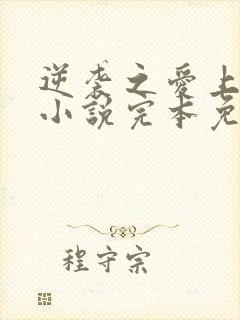 逆袭之爱上
小说完本免
程守宗